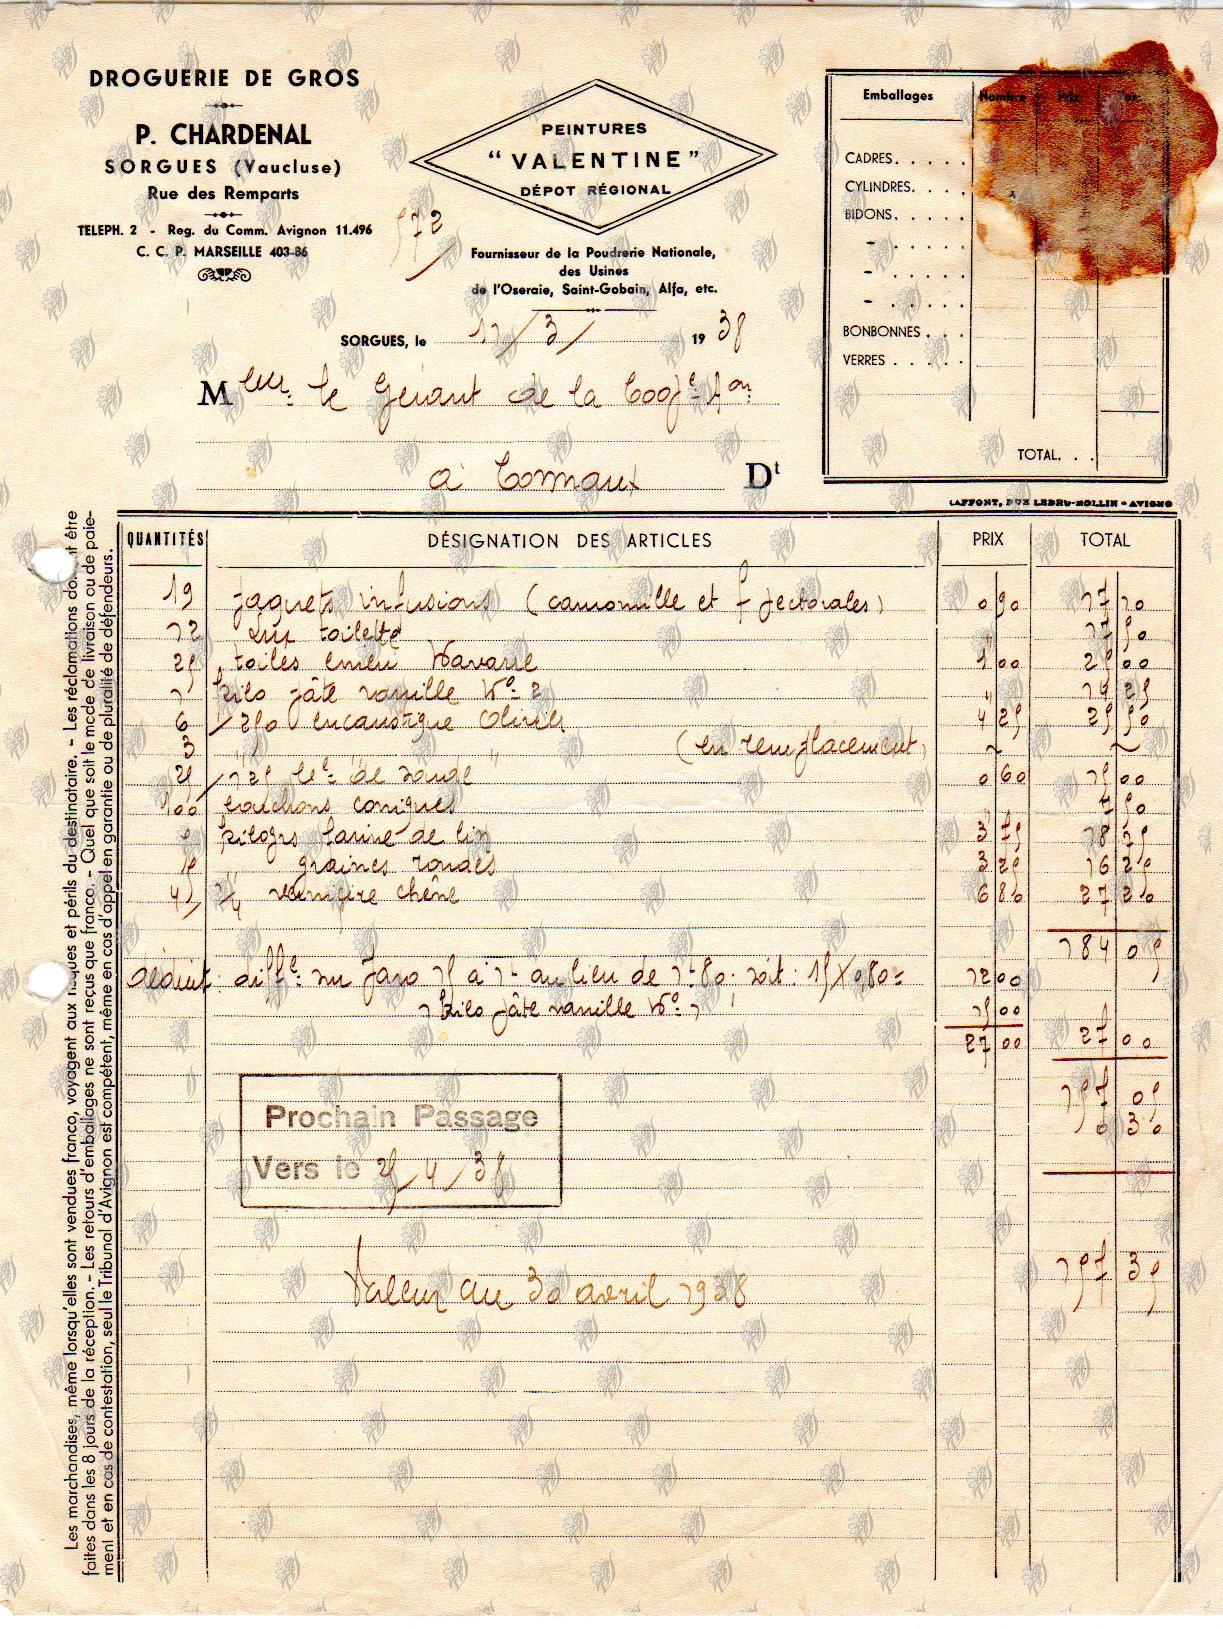 DROGUERIE DE GROS
P. CHARDENAL
SORGUES (Vaucluse)
Rue des Remparts
TELEPH. 2 - Reg. du Comm. Avignon 11.496
C. C. P. MARSEILLE 403-86
572
PEINTURES
"VALENTINE"
DÉPOT RÉGIONAL
Fournisseur de la Poudrerie Nationale,
des Usines
de l'Oseraie, Saint-Gobain, Alfa, etc.
SORGUES, le 11/3/ 1938
M le Gérant de la
à Comaux Dt
Emballages Nombre Prix
CADRES. . . . .
CYLINDRES. . . .
BIDONS. . . . .
- . . . . .
- . . . . .
- . . . . .
BONBONNES . . .
VERRES . . . . .
TOTAL. . .
LAFFONT, RUE LEDRU-ROLLIN - AVIGNO
QUANTITÉS DÉSIGNATION DES ARTICLES PRIX TOTAL
19 paquets infusions (camomille et f pectorales) 0 90 17 10
12 Lux toilette " 17 50
25 toiles émeri 1 00 25 00
1 kilo pâte vanille No 2 " 19 25
6 1/250 encaustique 4 25 25 50
3 " " " (en remplacement) ~ ~
25 1/125 de 0 60 15 00
100 bouchons coniques 7 50
5 kilogs farine de lin 3 75 18 75
5 " graines rondes 3 25 16 25
4 1/4 chêne 6 80 27 20
184 05
déduit : diffce sur 15 à 1- au lieu de 1-80 : soit : 15 X 0,80 = 12 00
1 kilo pâte vanille No 1 15 00
27 00 27 00
157 05
0 30
157 35
Prochain Passage
Vers le 25/4/38
Valeur au 30 avril 1938
Les marchandises, même lorsqu'elles sont vendues franco, voyagent aux risques et périls du destinataire. - Les réclamations doivent être
faites dans les 8 jours de la réception. - Les retours d'emballages ne sont reçus que franco. - Quel que soit le mode de livraison ou de paie-
ment et en cas de contestation, seul le Tribunal d'Avignon est compétent, même en cas d'appel en garantie ou de pluralité de défendeurs.